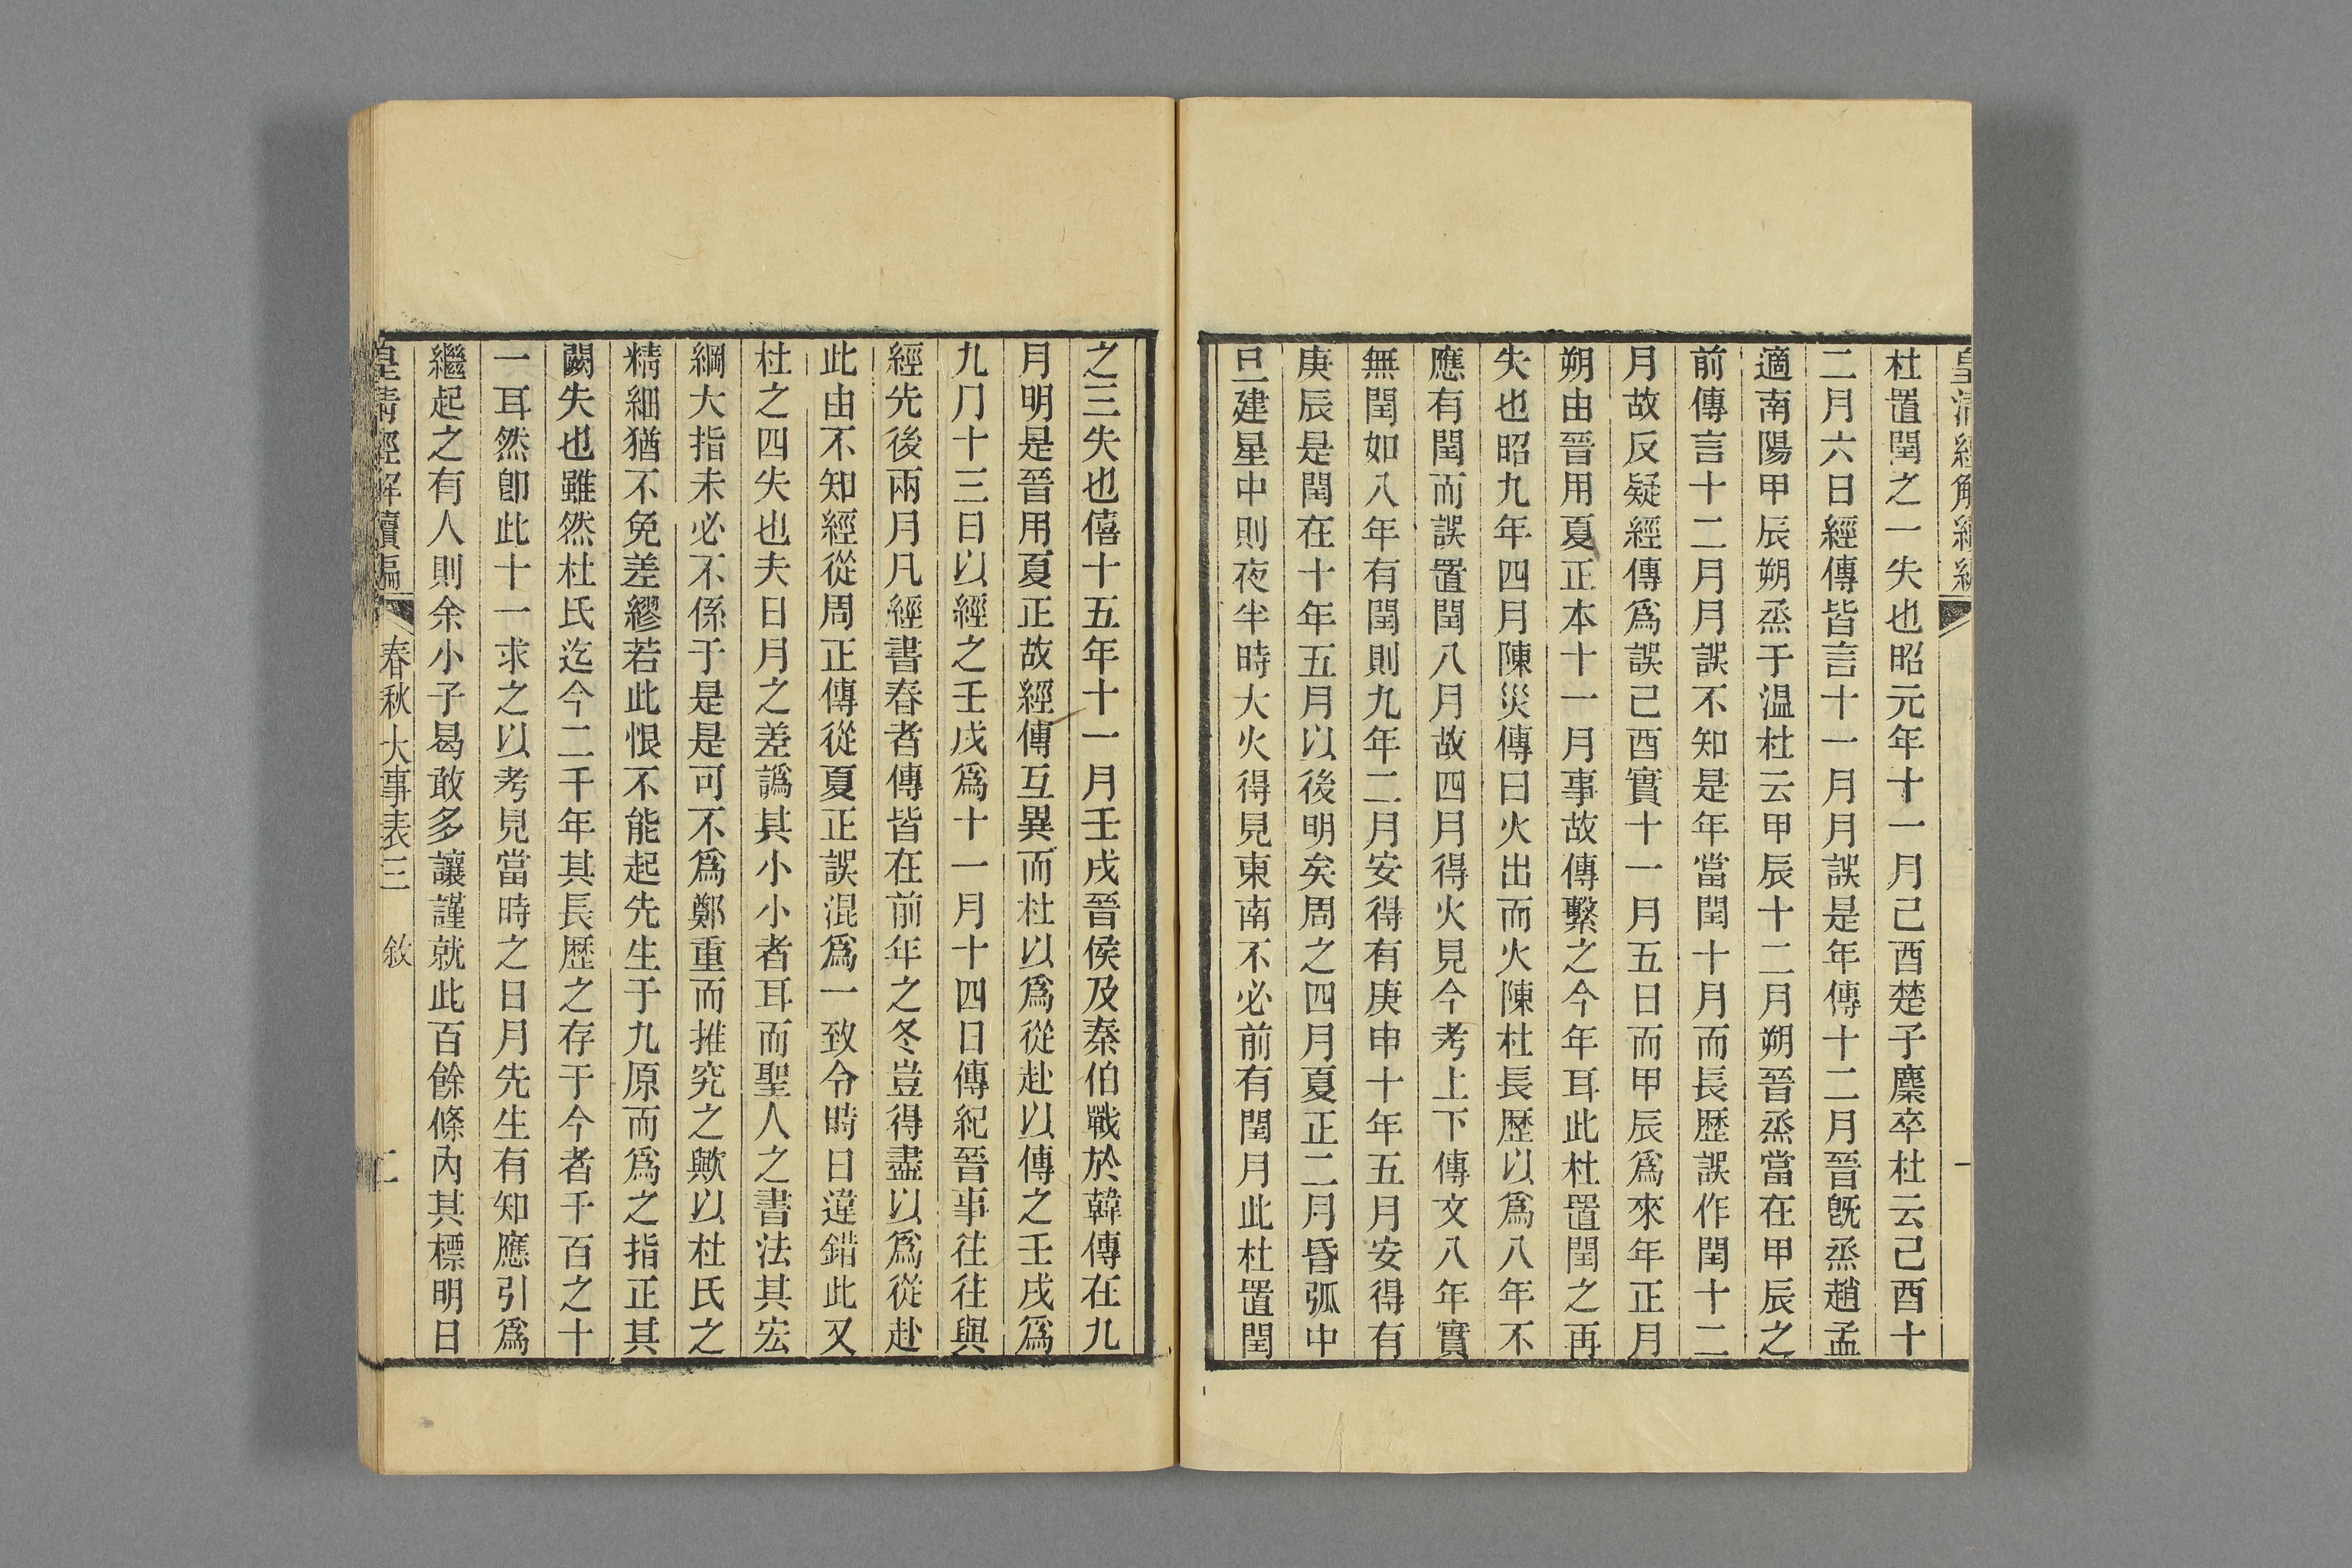 皇清經解續編
一
杜置閏之一失也昭元年十一月己酉楚子麇卒杜云己酉十
二月六日經傳皆言十一月月誤是年傳十二月晉旣烝趙孟
適南陽甲辰朔烝于溫杜云甲辰十二月朔晉烝當在甲辰之
前傳言十二月月誤不知是年當閏十月而長歷誤作閏十二
月故反疑經傳爲誤己酉實十一月五日而甲辰爲來年正月
朔由晉用夏正本十一月事故傳繫之今年耳此杜置閏之再
失也昭九年四月陳災傳曰火出而火陳杜長歷以爲八年不
應有閏而誤置閏八月故四月得火見今考上下傳文八年實
無閏如八年有閏則九年二月安得有庚申十年五月安得有
庚辰是閏在十年五月以後明矣周之四月夏正二月昏弧中
旦建星中則夜半時大火得見東南不必前有閏月此杜置閏
之三失也僖十五年十一月壬戌晉侯及秦伯戰於韓傳在九
月明是晉用夏正故經傳互異而杜以爲從赴以傳之壬戌爲
九月十三日以經之壬戌爲十一月十四日傳紀晉事往往與
經先後兩月凡經書春者傳皆在前年之冬豈得盡以爲從赴
此由不知經從周正傳從夏正誤混爲一致令時日違錯此又
杜之四失也夫日月之差譌其小小者耳而聖人之書法其宏
綱大指未必不係于是是可不爲鄭重而推究之歟以杜氏之
精細猶不免差繆若此恨不能起先生于九原而爲之指正其
闕失也雖然杜氏迄今二千年其長歷之存于今者千百之十
一耳然卽此十一求之以考見當時之日月先生有知應引爲
繼起之有人則余小子曷敢多讓謹就此百餘條內其標明日
皇淸經解續編
春秋大事表三 敘 二